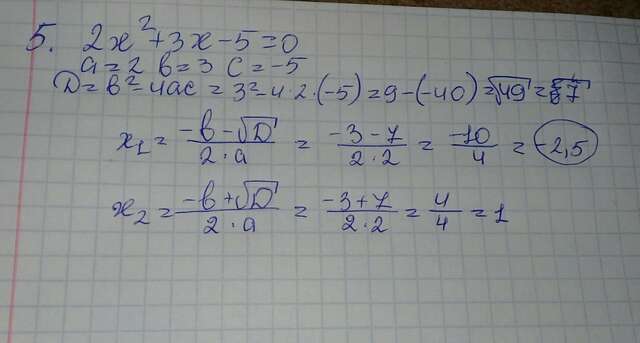 5. 2x²+3x-5=0
a=2 b=3 c=-5
D=b²-4ac=3²-4·2·(-5)=9-(-40)=√49=7
x₁=(-b-√D)/(2·a)=(-3-7)/(2·2)=-10/4=-2,5
x₂=(-b+√D)/(2·a)=(-3+7)/(2·2)=4/4=1